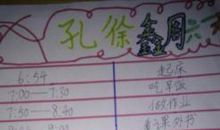 孔徐鑫周
6:54 起床
7:00——7:30 吃早饭
7:50——8:40 做作业
看课外书